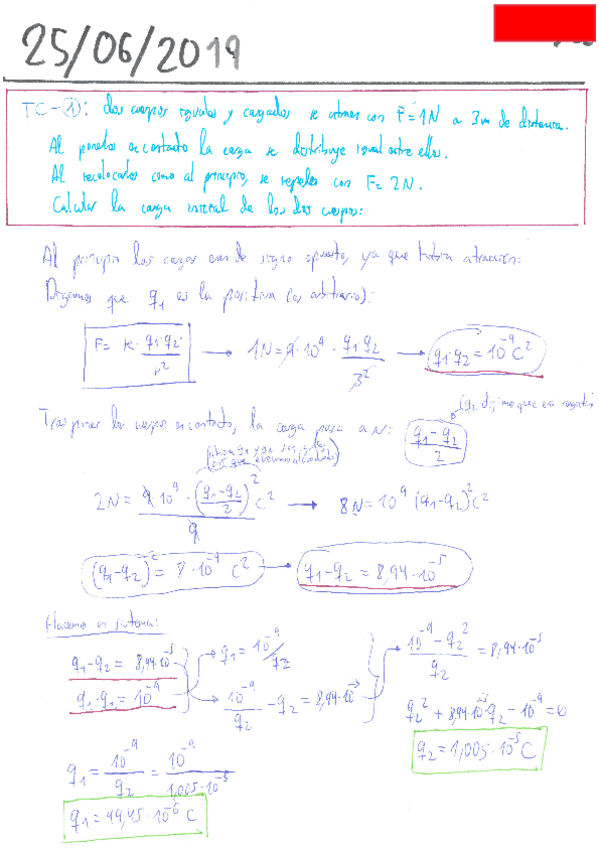 25/06/2019
TC-①: dos cuerpos iguales y cargados se atraen con F=1N a 3m de distancia.
Al ponerlos en contacto la carga se distribuye igual entre ellos.
Al recolocarlos como al principio, se repelen con F=2N.
Calcular la carga inicial de los dos cuerpos:
Al principio las cargas eran de signo opuesto, ya que había atracción:
Digamos que q₁ es la positiva (es arbitrario):
F= k· q₁·q₂ / r² → 1N=9·10⁹ · q₁q₂ / 3² → q₁·q₂=10⁻⁹C²
(q₂ dijimos que era negativa)
Tras poner los cuerpos en contacto, la carga pasa a ser: (q₁-q₂)/2
2N= 9·10⁹·((q₁-q₂)/2)² C² / 9 → 8N=10⁹(q₁-q₂)²C²
(q₁-q₂)²=8·10⁻⁹ C² → q₁-q₂=8,94·10⁻⁵
Hacemos un sistema:
q₁-q₂= 8,94·10⁻⁵ → q₁=10⁻⁹/q₂
q₁·q₁=10⁻⁹ → 10⁻⁹/q₂ -q₂=8,94·10⁻⁵
(10⁻⁹-q₂²)/q₂ = 8,94·10⁻⁵
q₂²+8,94·10⁻⁵q₂-10⁻⁹=0
q₂=1,005·10⁻⁵C
q₁= 10⁻⁹/q₂ = 10⁻⁹/1,005·10⁻⁵
q₁=99,45·10⁻⁶ C